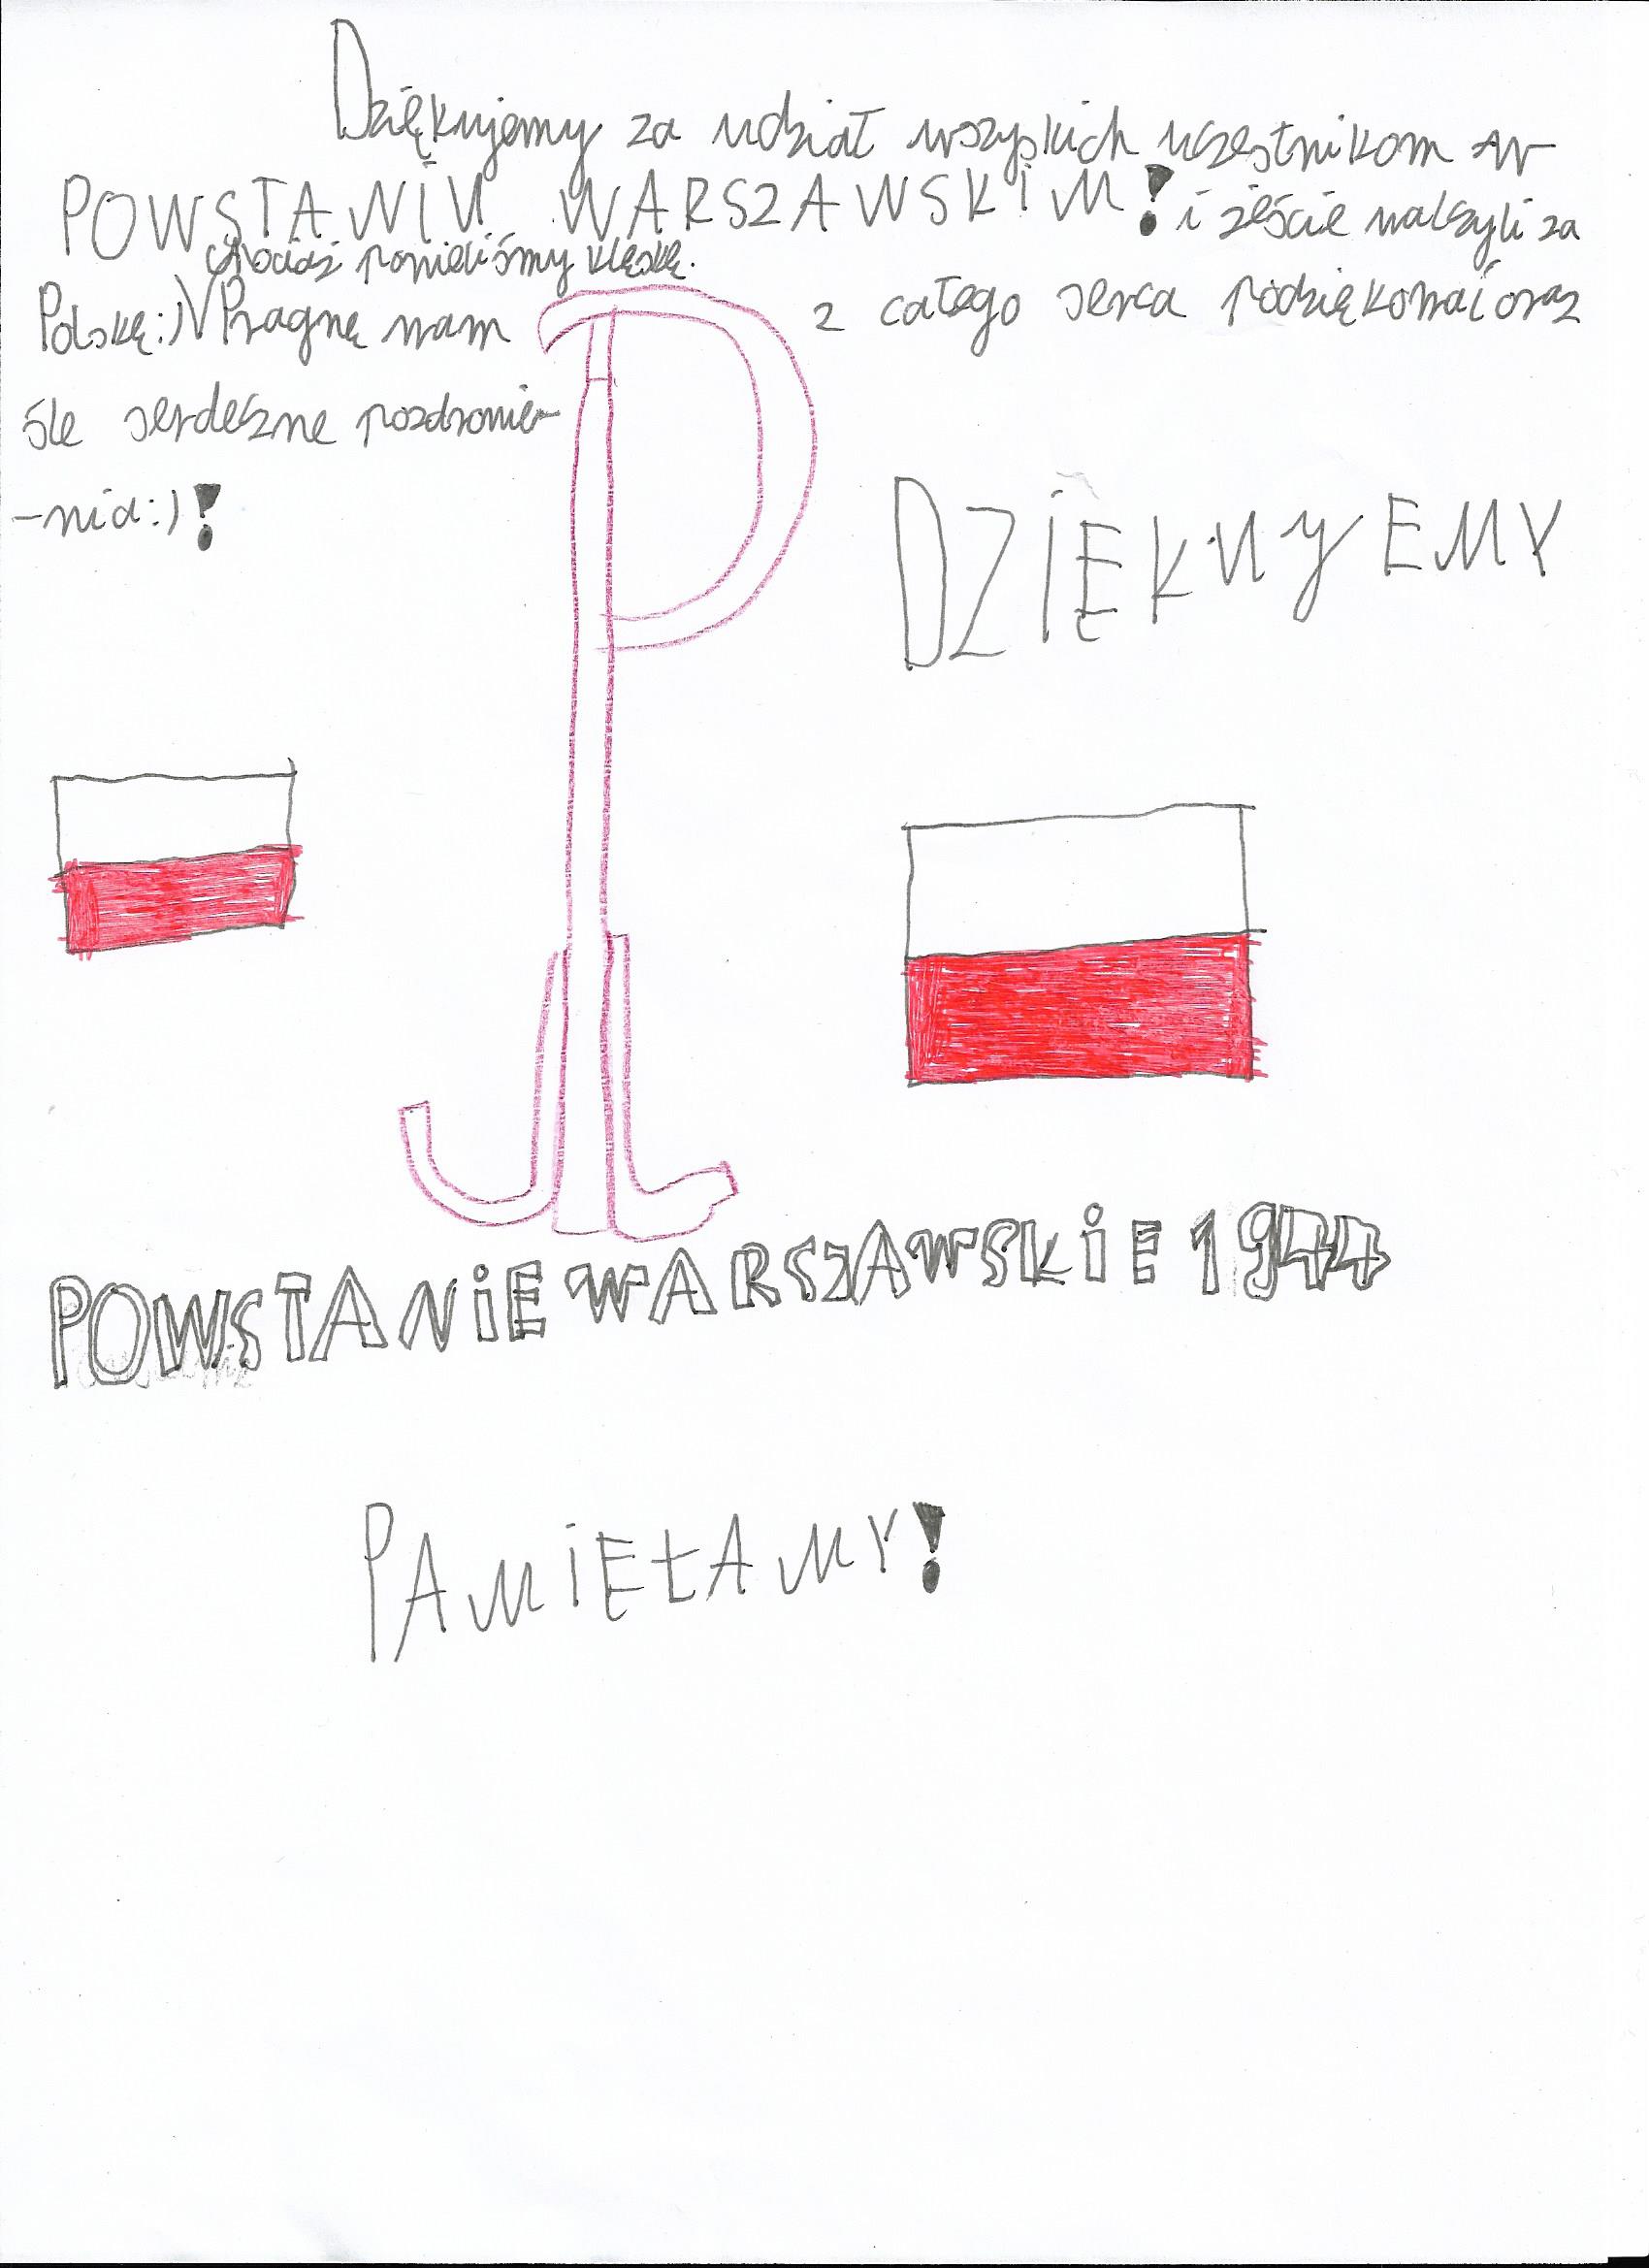 Dziękujemy za udział wszyskich uczestnikom w
POWSTANIU WARSZAWSKIM! i żeście walczyli za
chociaż ponieliśmy klęskę.
Polskę:) Pragnę wam z całego serca podziękować oraz
śle serdeczne pozdrowie-
-nia:)!
DZIĘKUJEMY
POWSTANIE WARSZAWSKIE 1944
PAMIĘTAMY!